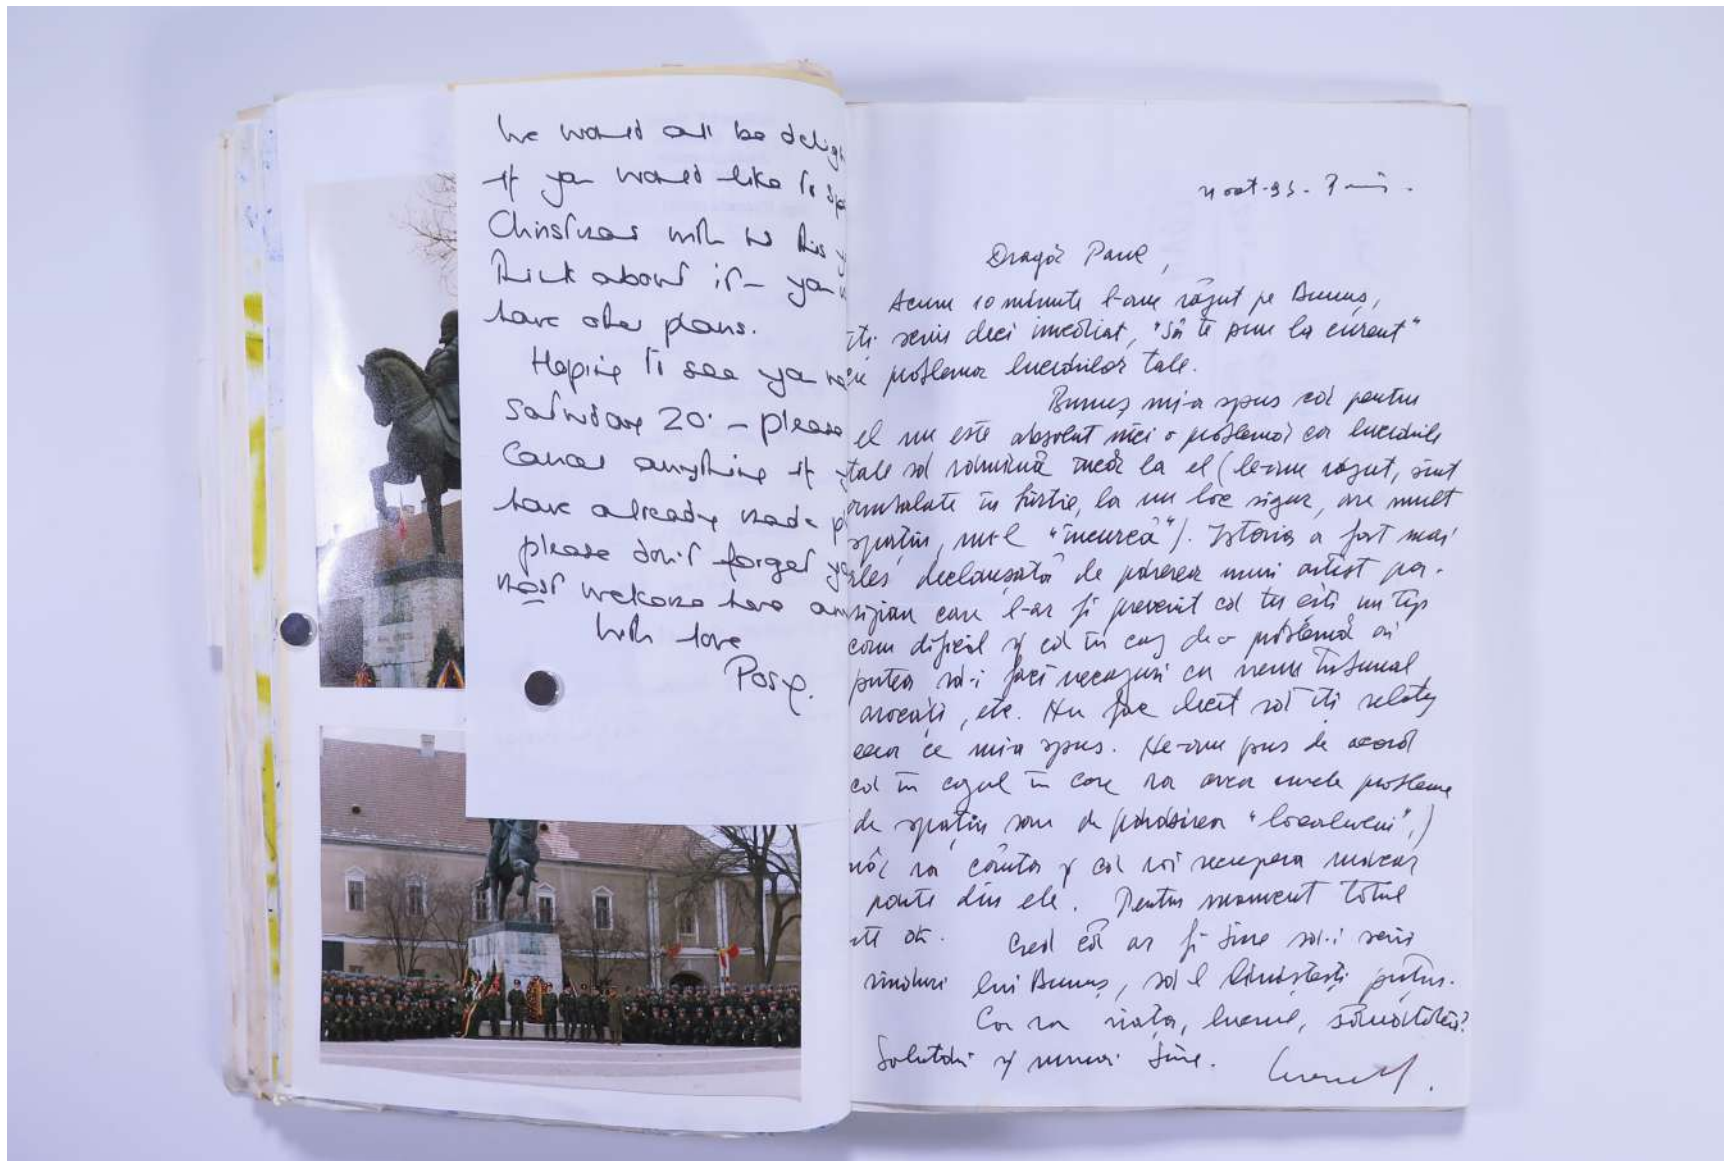 We would all be deligh
if you would like to spe
Christmas with us this y
think about it – you
have other plans.
Hoping to see you
Saturday 20. – please
Cancel anything if y
have already made p
please don't forget yo
most welcome here an
With love
Posy.
oct. 93.
Dragă Paul,
Acum 10 minute l-am văzut pe Bunuș,
iți scriu deci imediat, "să te pun la curent"
cu problema lucrărilor tale.
Bunuș mi-a spus că pentru
el nu este absolut nici o problemă ca lucrările
tale să rămînă încă la el (le-am văzut, sînt
ambalate în hîrtie, la un loc sigur, are mult
spațiu, nu-l "încurcă"). Istoria a fost mai
ales declanșată de părerea unui artist pa-
rizian care l-ar fi prevenit că tu ești un tip
cam dificil și că în caz de o problemă ai
putea să-i faci necazuri cu vreun tribunal
avocați, etc. Nu fac decît să îți relatez
ceea ce mi-a spus. Ne-am pus de acord
că în cazul în care va avea unele probleme
de spațiu sau de părăsirea "localului",
mă va căuta și că voi recupera măcar
parte din ele. Pentru moment totul
ok. Cred că ar fi bine să-i scrii
rînduri lui Bunuș, să-l liniștești puțin.
Ce viața, lucrul, sănătatea?
Salutări și numai bine.